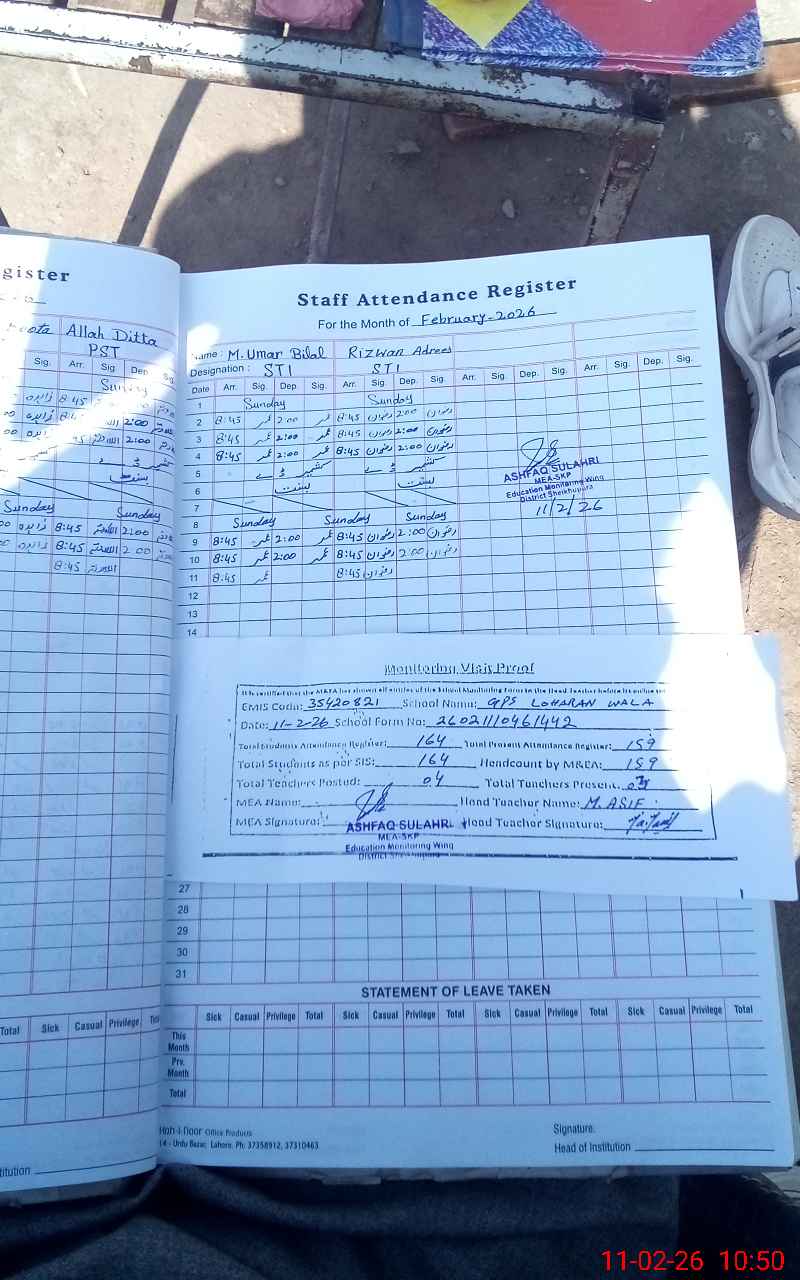 gister
Allah Ditta
PST
Sig. Arr. Sig Dep Sig
Sunday
8:45 2:00
2:00
Sunday Sunday
8:45 2:00
8:45 2 00
8:45
Staff Attendance Register
For the Month of February-2026
Name : M. Umar Bilal Rizwan Adrees
Designation : STI STI
Date Arr. Sig. Dep Sig. Arr. Sig. Dep. Sig. Arr. Sig. Dep. Sig. Arr. Sig. Dep. Sig.
1 Sunday Sunday
2 8:45 عمر 2:00 عمر 8:45 رضوان 2:00 رضوان
3 8:45 عمر 2:00 عمر 8:45 رضوان 2:00 رضوان
4 8:45 عمر 2:00 عمر 8:45 رضوان 2:00 رضوان
5 کشمیر ڈے کشمیر ڈے
6 بسنت بسنت
7
8 Sunday Sunday Sunday
9 8:45 عمر 2:00 عمر 8:45 رضوان 2:00 رضوان
10 8:45 عمر 2:00 عمر 8:45 رضوان 2:00 رضوان
11 8:45 عمر 8:45 رضوان
12
13
14
ASHFAQ SULAHRI
MEA-SKP
Education Monitoring Wing
District Sheikhupura
11/2/26
Monitoring Visit Proof
It is certified that the MEA has shown all entries of the School Monitoring Form to the Head Teacher before its
EMIS Code: 35420821 School Name: GPS LOHARAN WALA
Date: 11-2-26 School Form No: 26021110461442
Total Students Attendance Register: 164 Total Present Attendance Register: 159
Total Students as per SIS: 164 Headcount by MEA: 159
Total Teachers Posted: 04 Total Teachers Present: 03
MEA Name: Head Teacher Name: M. ASIF
MEA Signature: Head Teacher Signature:
ASHFAQ SULAHRI
MEA-SKP
Education Monitoring Wing
District Sheikhupura
27
28
29
30
31
STATEMENT OF LEAVE TAKEN
Total Sick Casual Privilege
Sick Casual Privilege Total Sick Casual Privilege Total Sick Casual Privilege Total Sick Casual Privilege Total
This Month
Prv. Month
Total
Koh-i-Noor Office Products
14 - Urdu Bazar, Lahore. Ph: 37358912, 37310463
Signature:
Head of Institution
titution
11-02-26 10:50